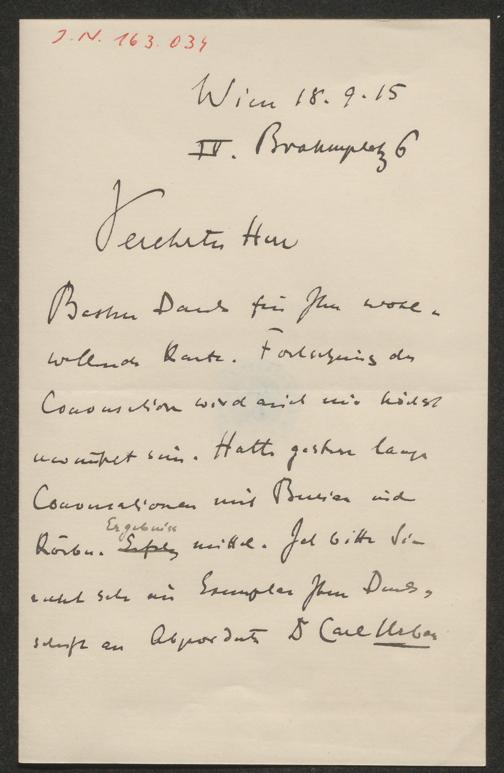 J.N. 163.034
Wien 18.9.15
IV. Brahmsplatz 6
Verehrter Herr
Besten Dank für Ihre wohl-
wollende Karte. Fortsetzung der
Conversation wird auch mir höchst
erwünscht sein. Hatte gestern lange
Conversationen mit Burian und
Ergebnisse
Körber. Erfolg mittel. Ich bitte Sie
recht sehr ein Exemplar Ihrer Denk-
schrift an Abgeordneten Dr Carl Urban